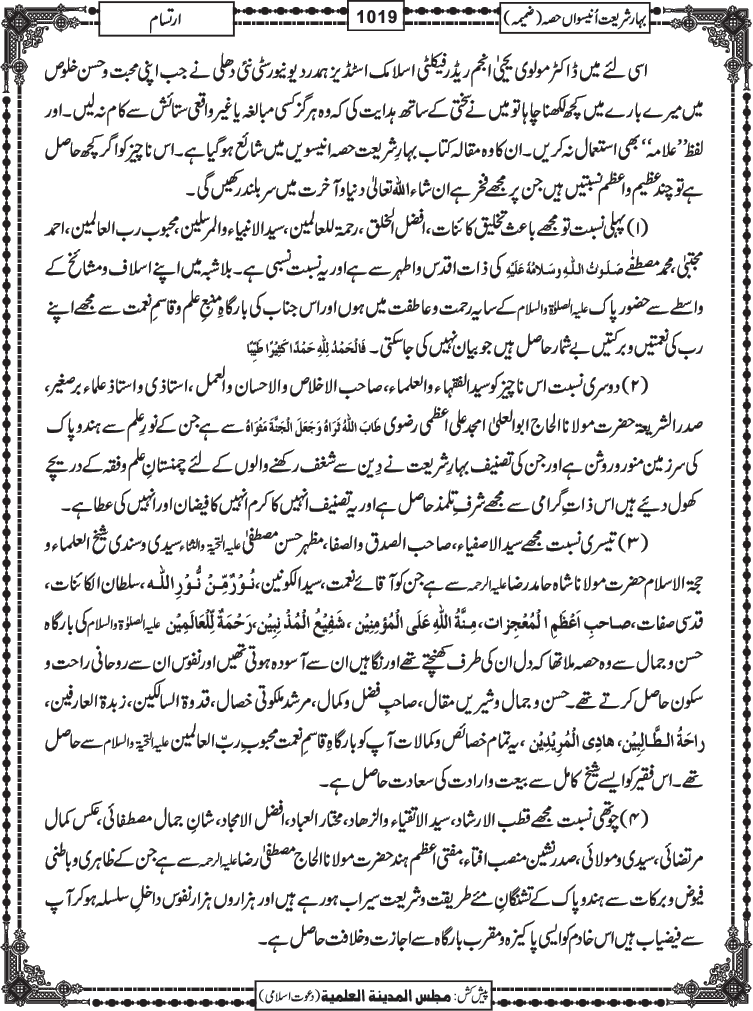 بہارِ شریعت اُنیسواں حصہ (ضمیمہ) 1019 ارتسام
اسی لئے میں ڈاکٹر مولوی یحیٰی انجم ریڈر فیکلٹی اسلامک اسٹڈیز ہمدرد یونیورسٹی نئی دھلی نے جب اپنی محبت و حسن خلوص
میں میرے بارے میں کچھ لکھنا چاہا تو میں نے سختی کے ساتھ ہدایت کی کہ وہ ہرگز کسی مبالغہ یا غیر واقعی ستائش سے کام نہ لیں۔ اور
لفظ ’’علامہ‘‘ بھی استعمال نہ کریں۔ ان کا وہ مقالہ کتاب بہارِ شریعت حصہ انیسویں میں شائع ہو گیا ہے۔ اس ناچیز کو اگر کچھ حاصل
ہے تو چند عظیم و اعظم نسبتیں ہیں جن پر مجھے فخر ہے ان شاء اللہ تعالٰی دنیا و آخرت میں سر بلند رکھیں گی ۔
(۱) پہلی نسبت تو مجھے باعث تخلیق کائنات، افضل الخلق، رحمۃ للعالمین، سید الانبیاء والمرسلین، محبوب رب العالمین، احمد
مجتبٰی، محمد مصطفٰے صَلَوٰتُ اللہِ وَسَلَامُہُ عَلَیْہِ کی ذات اقدس و اطہر سے ہے اور یہ نسبت نسبی ہے۔ بلاشبہ میں اپنے اسلاف و مشائخ کے
واسطے سے حضور پاک علیہ الصلوٰۃ والسلام کے سایہ رحمت و عاطفت میں ہوں اور اس جناب کی بارگاہِ منبعِ علم و قاسمِ نعمت سے مجھے اپنے
رب کی نعمتیں و برکتیں بے شمار حاصل ہیں جو بیان نہیں کی جا سکتی۔ فَالْحَمْدُ لِلّٰہِ حَمْدًا کَثِیْرًا طَیِّبًا
(۲) دوسری نسبت اس ناچیز کو سید الفقہاء والعلماء، صاحب الاخلاص والاحسان والعمل، استاذی و استاذ علماء برصغیر،
صدر الشریعۃ حضرت مولانا الحاج ابوالعلیٰ امجد علی اعظمی رضوی طَابَ اللّٰہُ ثَرَاہُ وَجَعَلَ الْجَنَّۃَ مَثْوَاہُ سے ہے جن کے نورِ علم سے ہند و پاک
کی سرزمین منور و روشن ہے اور جن کی تصنیف بہارِ شریعت نے دِین سے شغف رکھنے والوں کے لئے چمنستانِ علم و فقہ کے دریچے
کھول دیئے ہیں اس ذاتِ گرامی سے مجھے شرفِ تلمذ حاصل ہے اور یہ تصنیف انہیں کا کرم انہیں کا فیضان اور انہیں کی عطا ہے۔
(۳) تیسری نسبت مجھے سید الاصفیاء، صاحب الصدق والصفا، مظہر حسن مصطفیٰ علیہ التحیۃ والثناء سیدی و سندی شیخ العلماء و
حجۃ الاسلام حضرت مولانا شاہ حامد رضا علیہ الرحمہ سے ہے جن کو آقائے نعمت، سید الکونین، نُوْرٌ مِّنْ نُّوْرِ اللّٰہ، سلطان الکائنات،
قدسی صفات، صاحبِ اَعْظَمِ الْمُعْجِزَات، مِنَّۃُ اللّٰہِ عَلَی الْمُؤْمِنِیْن، شَفِیْعُ الْمُذْنِبِیْن، رَحْمَۃٌ لِّلْعَالَمِیْن علیہ الصلوٰۃ والسلام کی بارگاہ
حسن و جمال سے وہ حصہ ملا تھا کہ دل ان کی طرف کھنچتے تھے اور نگاہیں ان سے آسودہ ہوتی تھیں اور نفوس ان سے روحانی راحت و
سکون حاصل کرتے تھے۔ حسن و جمال و شیریں مقال، صاحبِ فضل و کمال، مرشد ملکوتی خصال، قدوۃ السالکین، زبدۃ العارفین،
رَاحَۃُ الطَّالِبِیْن، ھَادِی الْمُرِیْدِیْن، یہ تمام خصائص و کمالات آپ کو بارگاہِ قاسمِ نعمت محبوب ربّ العالمین علیہ التحیۃ والسلام سے حاصل
تھے۔ اس فقیر کو ایسے شیخ کامل سے بیعت و ارادت کی سعادت حاصل ہے۔
(۴) چوتھی نسبت مجھے قطب الارشاد، سید الاتقیاء والزھاد، مختار العباد، افضل الامجاد، شانِ جمال مصطفائی، عکس کمال
مرتضائی، سیدی و مولائی، صدر نشین منصب افتاء، مفتی اعظم ہند حضرت مولانا الحاج مصطفٰی رضا علیہ الرحمہ سے ہے جن کے ظاہری و باطنی
فیوض و برکات سے ہند و پاک کے تشنگانِ مئے طریقت و شریعت سیراب ہو رہے ہیں اور ہزاروں ہزار نفوس داخلِ سلسلہ ہو کر آپ
سے فیضیاب ہیں اس خادم کو ایسی پاکیزہ و مقرب بارگاہ سے اجازت و خلافت حاصل ہے۔
پیش کش: مجلس المدینۃ العلمیۃ (دعوتِ اسلامی)